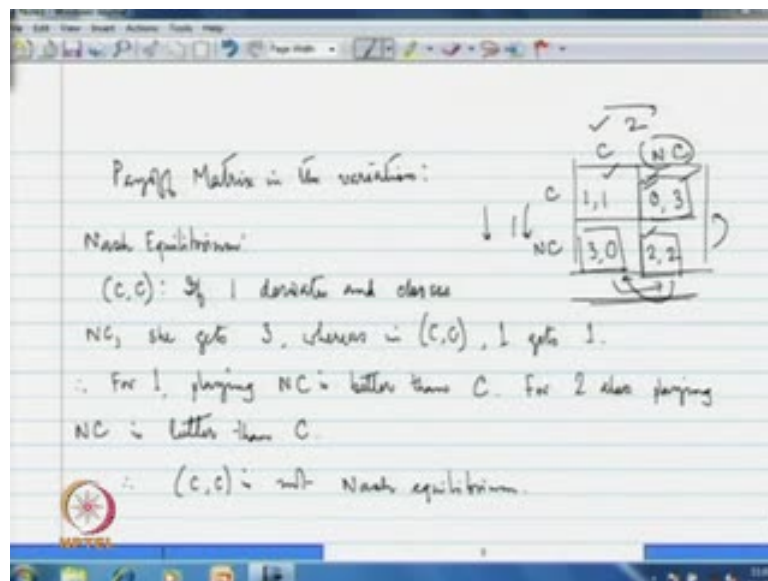 File Edit View Insert Actions Tools Help
Page Width
✓ 2
C NC
Payoff Matrix in the variation:
C 1,1 0,3
1
NC 3,0 2,2
Nash Equilibrium:
(C,C): If 1 deviates and chooses
NC, she gets 3, whereas in (C,C), 1 gets 1.
∴ For 1, playing NC is better than C. For 2 also playing
NC is better than C.
∴ (C,C) is not Nash equilibrium.
NPTEL